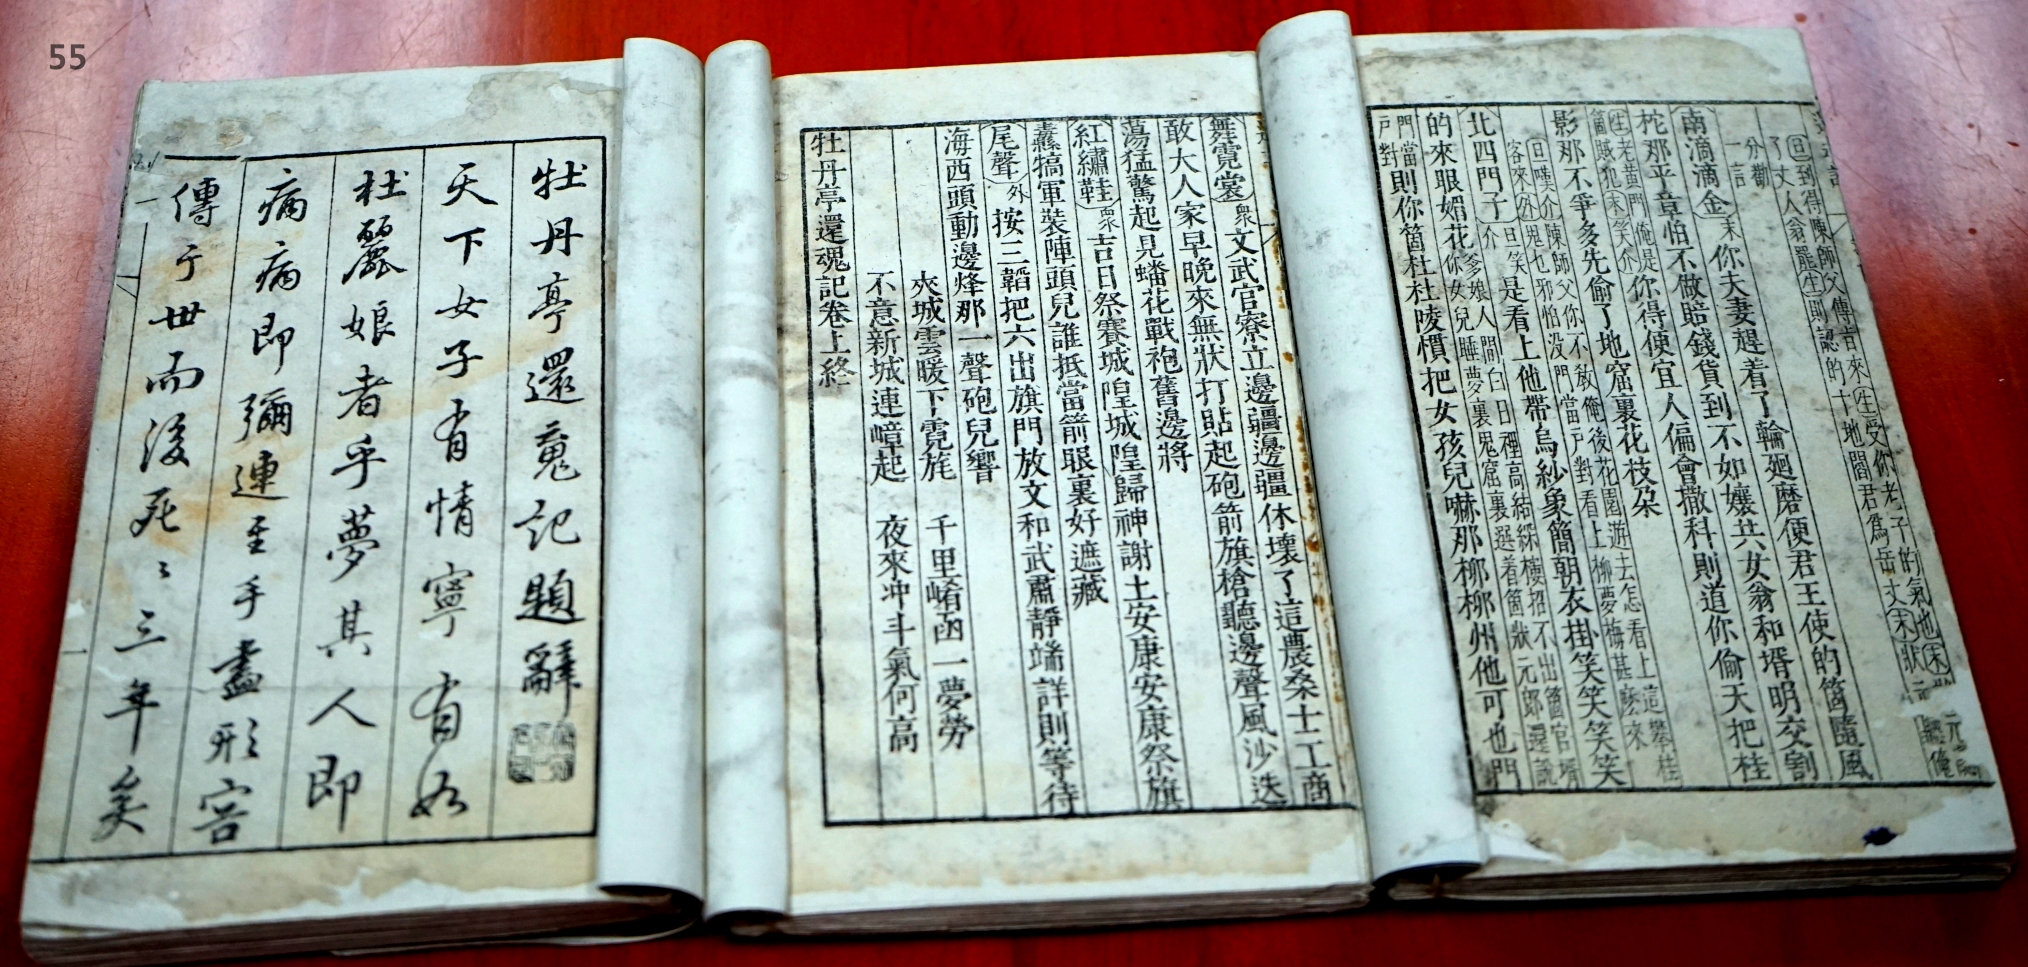 55
牡丹亭還䰟記題辭
天下女子有情寧有如
杜麗娘者乎夢其人即
病病即彌連至手畫形容
傳于世而後死〻三年矣
舞霓裳衆文武官寮立邊疆邊疆休壞了這農桑士工商
敢大人家早晚來無狀打貼起砲箭旗槍聽邊聲風沙迭
蕩猛驚起見蟠花戰袍舊邊將
紅繡鞋衆吉日祭賽城隍城隍歸神謝土安康安康祭旗
纛犒軍裝陣頭兒誰抵當箭眼裏好遮藏
尾聲外按三韜把六出旗門放文和武肅靜端詳則等待
海西頭動邊烽那一聲砲兒響
夾城雲暖下霓旄 千里崤函一夢勞
不意新城連嶂起 夜來冲斗氣何高
牡丹亭還魂記卷上終
旦到得陳師父傳旨來生受你老子的氣也末狀元
了丈人翁罷生則認的十地閻君爲岳丈末狀元聽俺
分勸
一言
南滴滴金末你夫妻趕着了輪廻磨便君王使的箇隨風
柁那平章怕不做賠錢貨到不如孃共女翁和壻明交割
生老黃門俺是
箇賊犯末笑介
你得便宜人偏會撒科則道你偷天把桂
影那不爭多先偷了地窟裏花枝朵
旦嘆介陳師父你不教俺後花園遊去怎看上這攀桂
客來外鬼也邪怕没門當戶對看上柳夢梅甚麽來
北四門子旦笑介是看上他帶烏紗象簡朝衣掛笑笑笑笑
的來眼媚花
爹娘人間白日裡高結綵樓招不出箇官壻
你女兒睡夢裏鬼窟裏選着箇狀元郎還說
門當
戶對
則你箇杜杜陵慣把女孩兒嚇那柳柳州他可也門